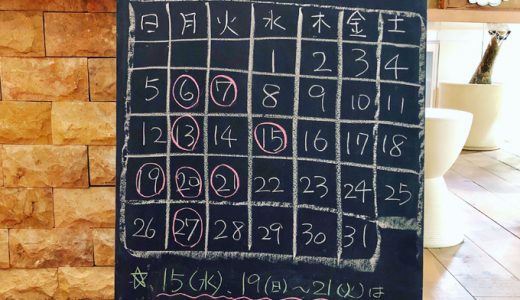 日 月 火 水 木 金 土
1 2 3 4
5 6 7 8 9 10 11
12 13 14 15 16 17 18
19 20 21 22 23 24 25
26 27 28 29 30 31
☆ 15(水)、19(日)〜21(火)は